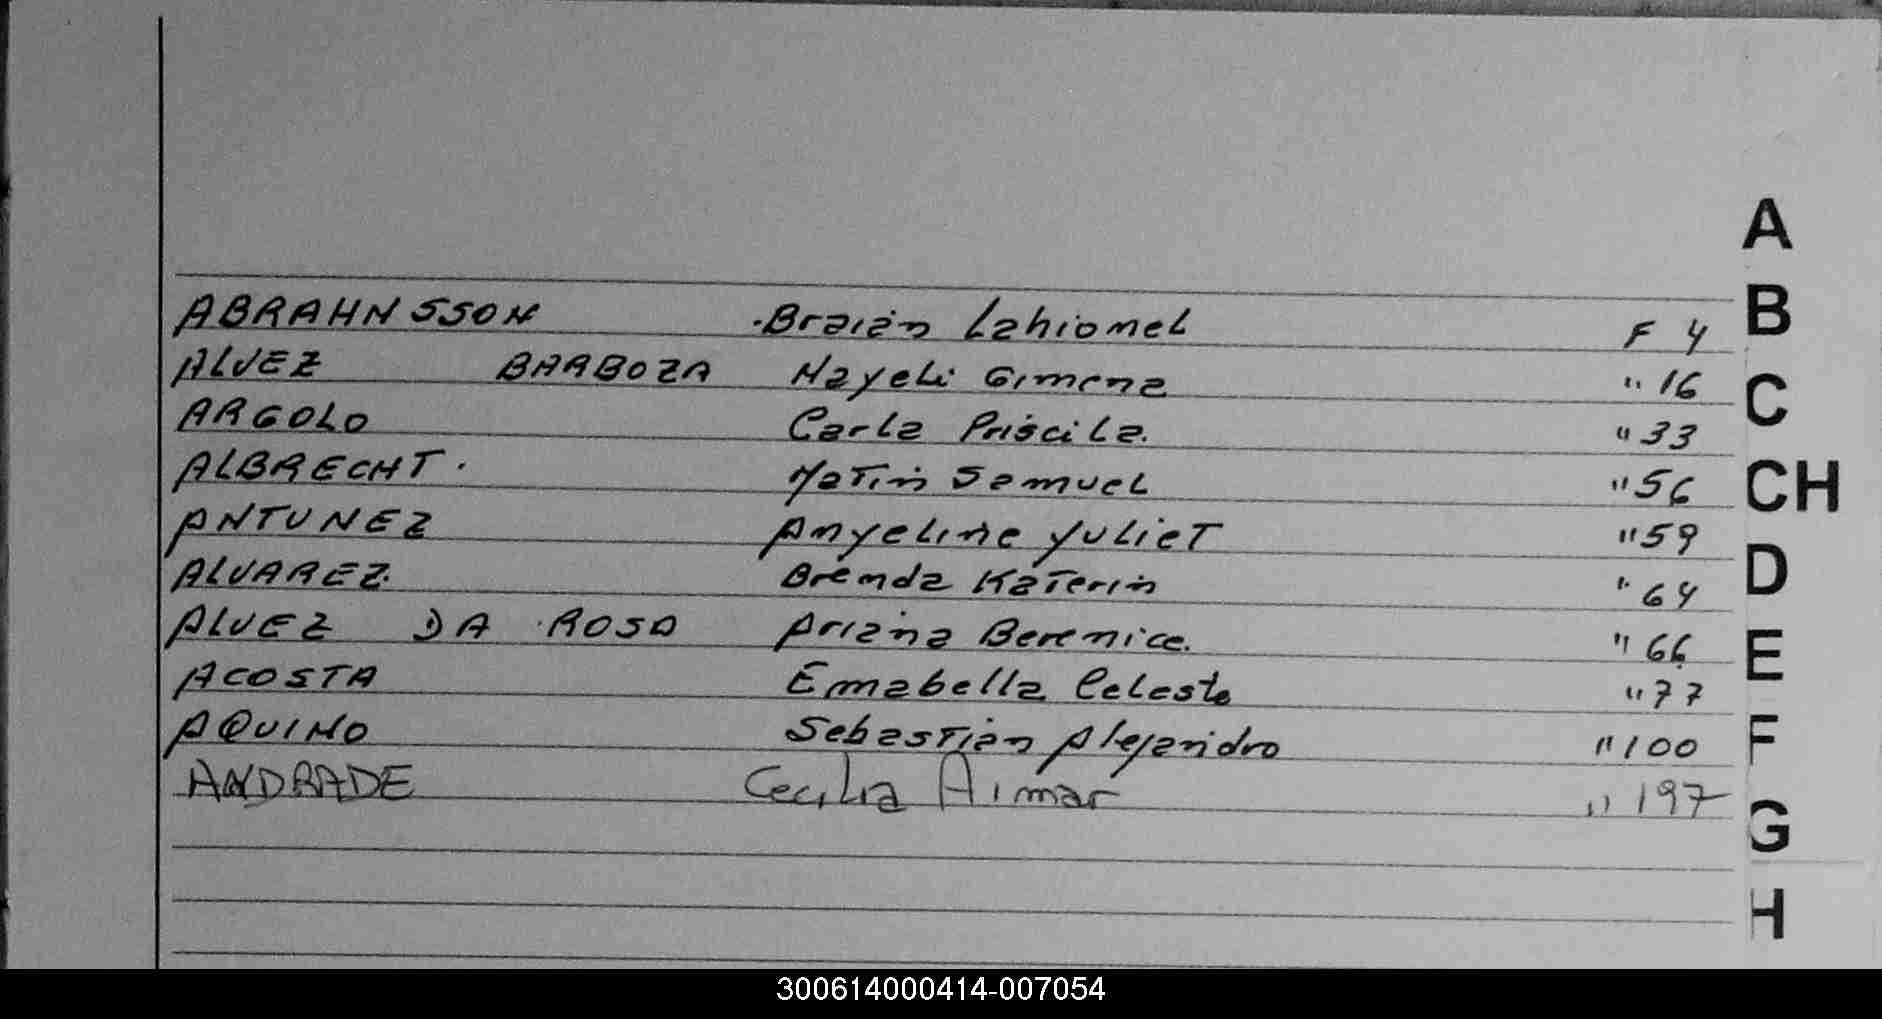 ABRAHNSSON Braian Lahionel F 4
ALVEZ BARBOZA Nayeli Gimena " 16
ARGOLO Carla Priscila. " 33
ALBRECHT. Matin Samuel " 56
ANTUNEZ Anyeline Yuliet " 59
ALVAREZ. Brenda Katerin " 64
ALVEZ DA ROSA Ariana Berenice. " 66
ACOSTA Emabella Celeste " 77
AQUINO Sebastian Alejandro " 100
ANDRADE Cecilia Aimar " 197
A
B
C
CH
D
E
F
G
H
300614000414-007054